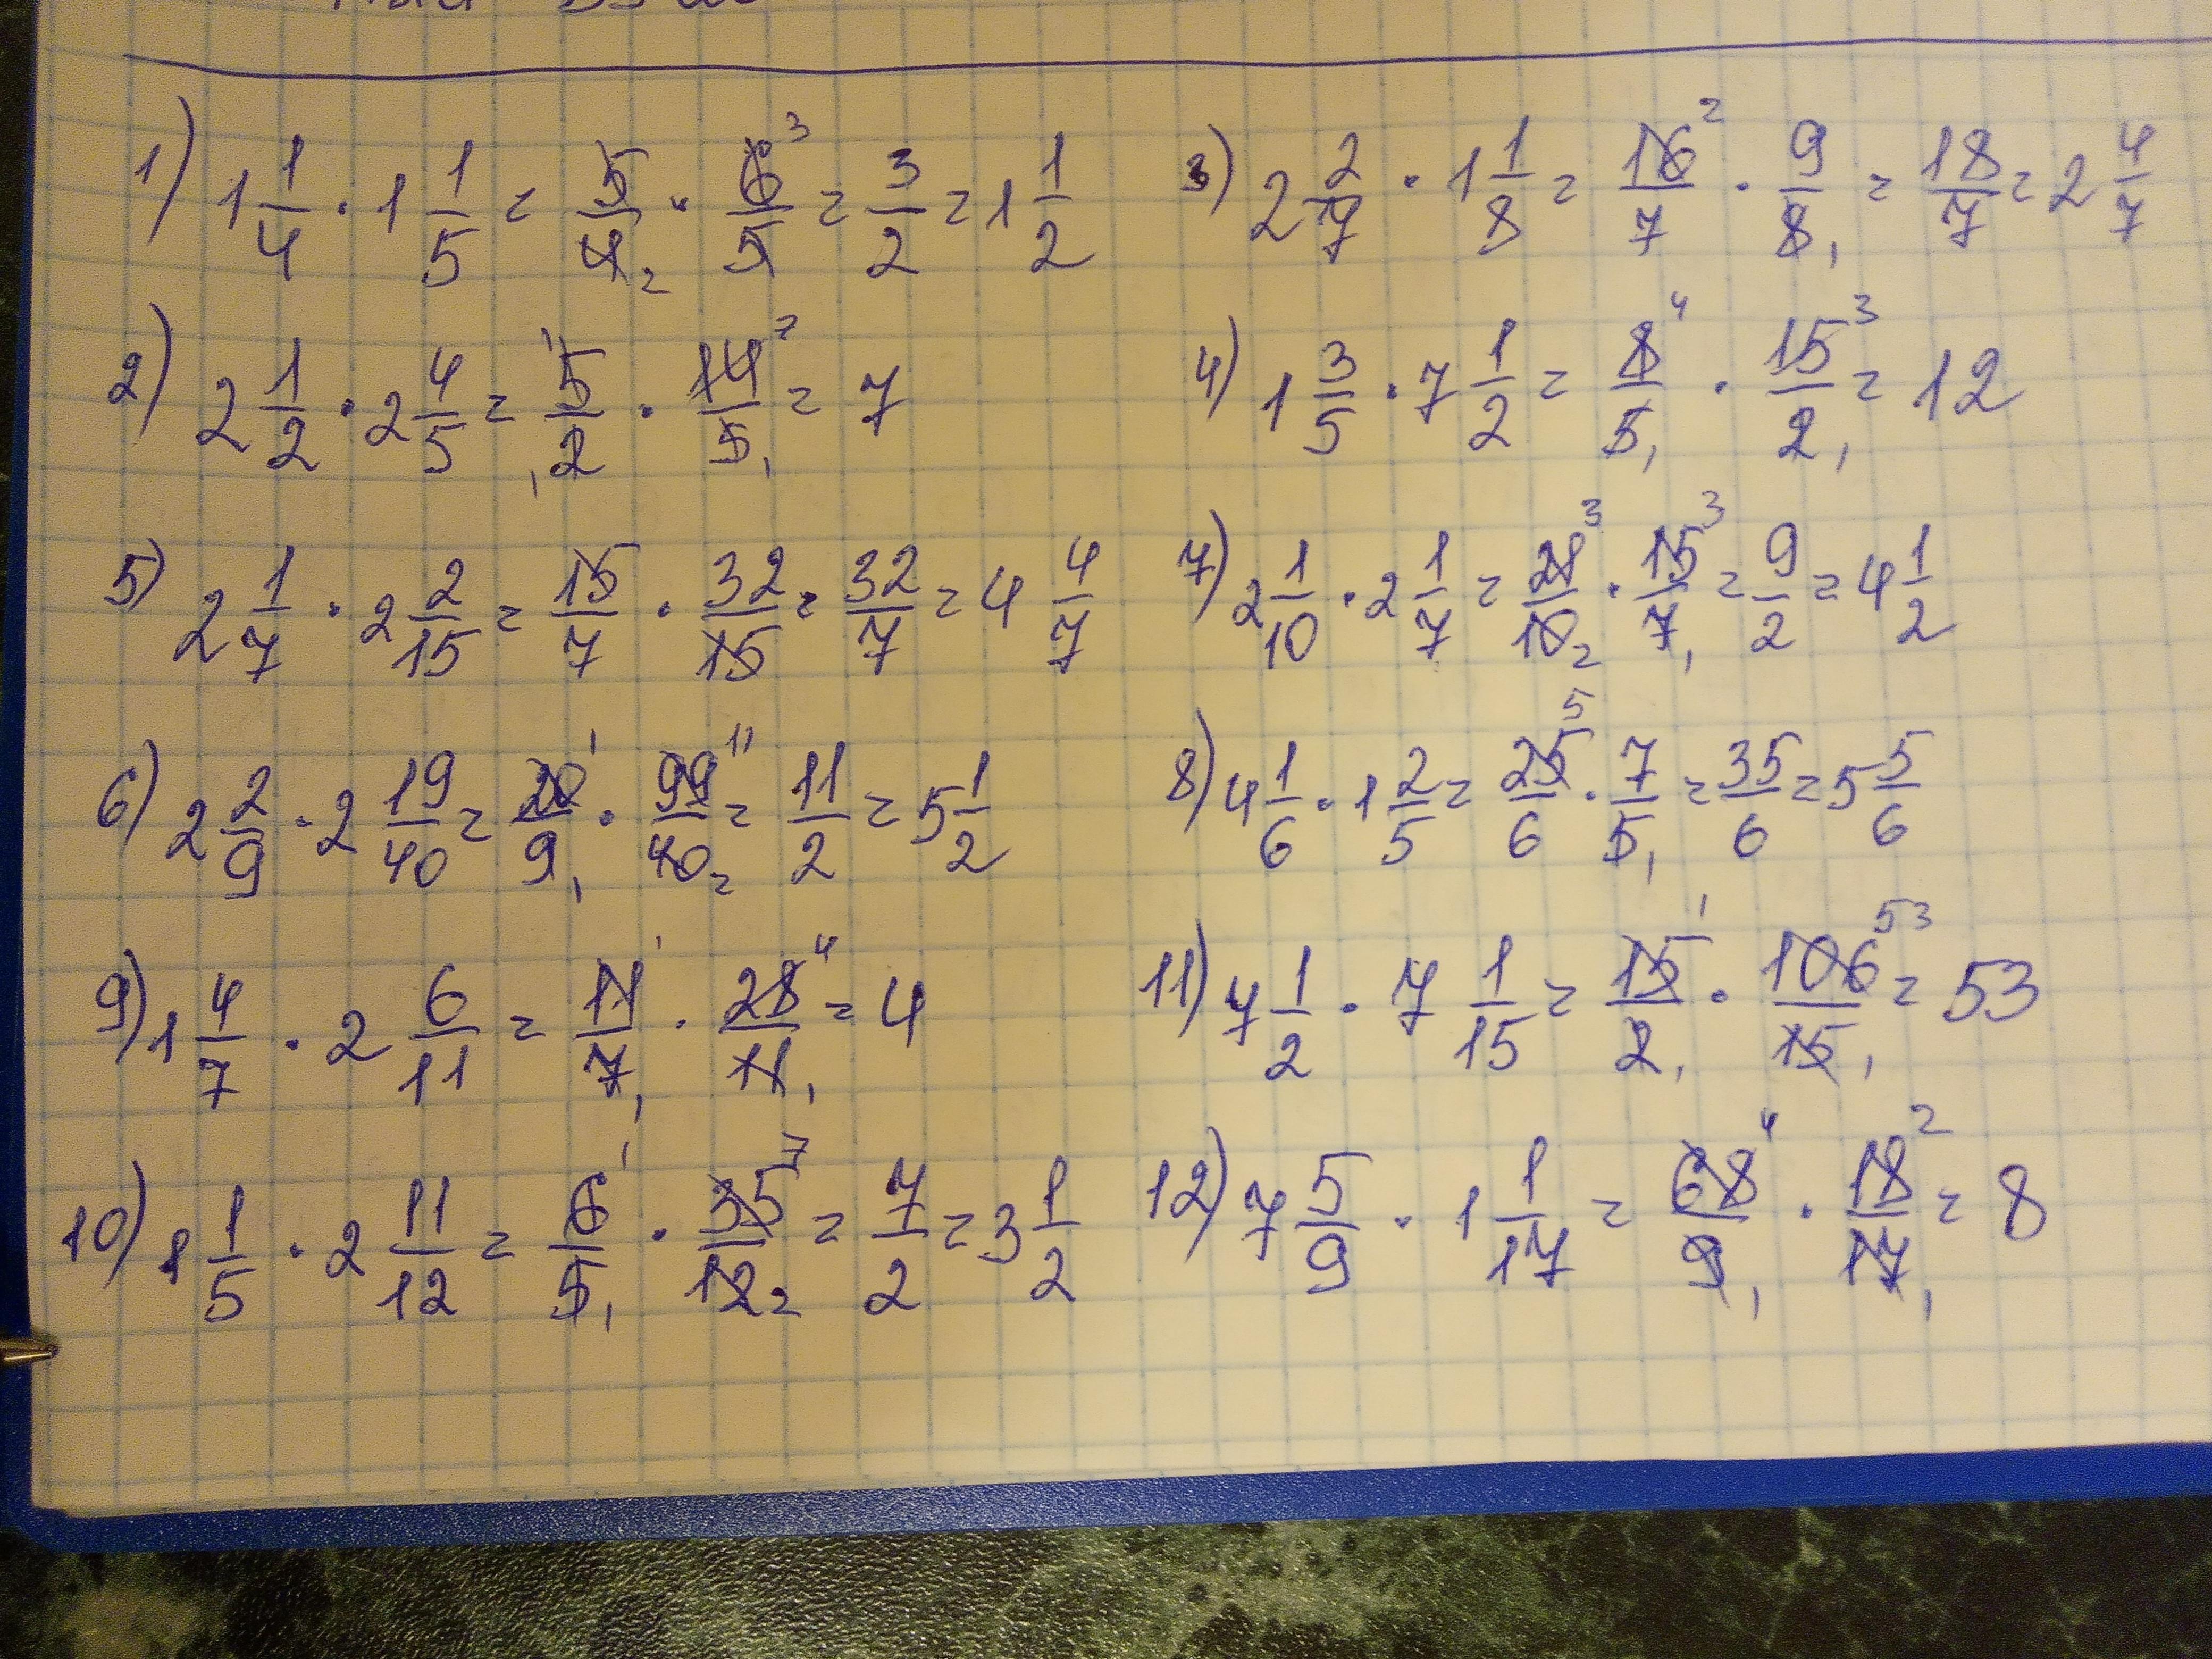 1) 1 1/4 · 1 1/5 = 5/4 2 · 6 3/5 = 3/2 = 1 1/2
3) 2 2/7 · 1 1/8 = 16 2/7 · 9/8 1 = 18/7 = 2 4/7
2) 2 1/2 · 2 4/5 = 1 5/1 2 · 14 7/5 1 = 7
4) 1 3/5 · 7 1/2 = 8 4/5 1 · 15 3/2 1 = 12
5) 2 1/7 · 2 2/15 = 15/7 · 32/15 = 32/7 = 4 4/7
7) 2 1/10 · 2 1/7 = 21 3/10 2 · 15 3/7 1 = 9/2 = 4 1/2
6) 2 2/9 · 2 19/40 = 20 1/9 1 · 99 11/40 2 = 11/2 = 5 1/2
8) 4 1/6 · 1 2/5 = 25 5/6 · 7/5 1 = 35/6 = 5 5/6
9) 1 4/7 · 2 6/11 = 11 1/7 1 · 28 4/11 1 = 4
11) 7 1/2 · 7 1/15 = 15 1/2 1 · 106 53/15 1 = 53
10) 1 1/5 · 2 11/12 = 6 1/5 1 · 35 7/12 2 = 7/2 = 3 1/2
12) 7 5/9 · 1 1/17 = 68 4/9 1 · 18 2/17 1 = 8